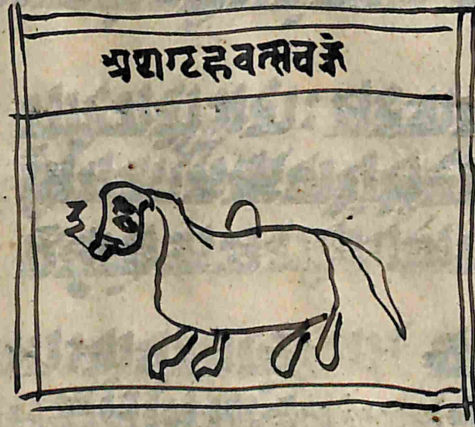 अथगृहवत्सचक्रं
३